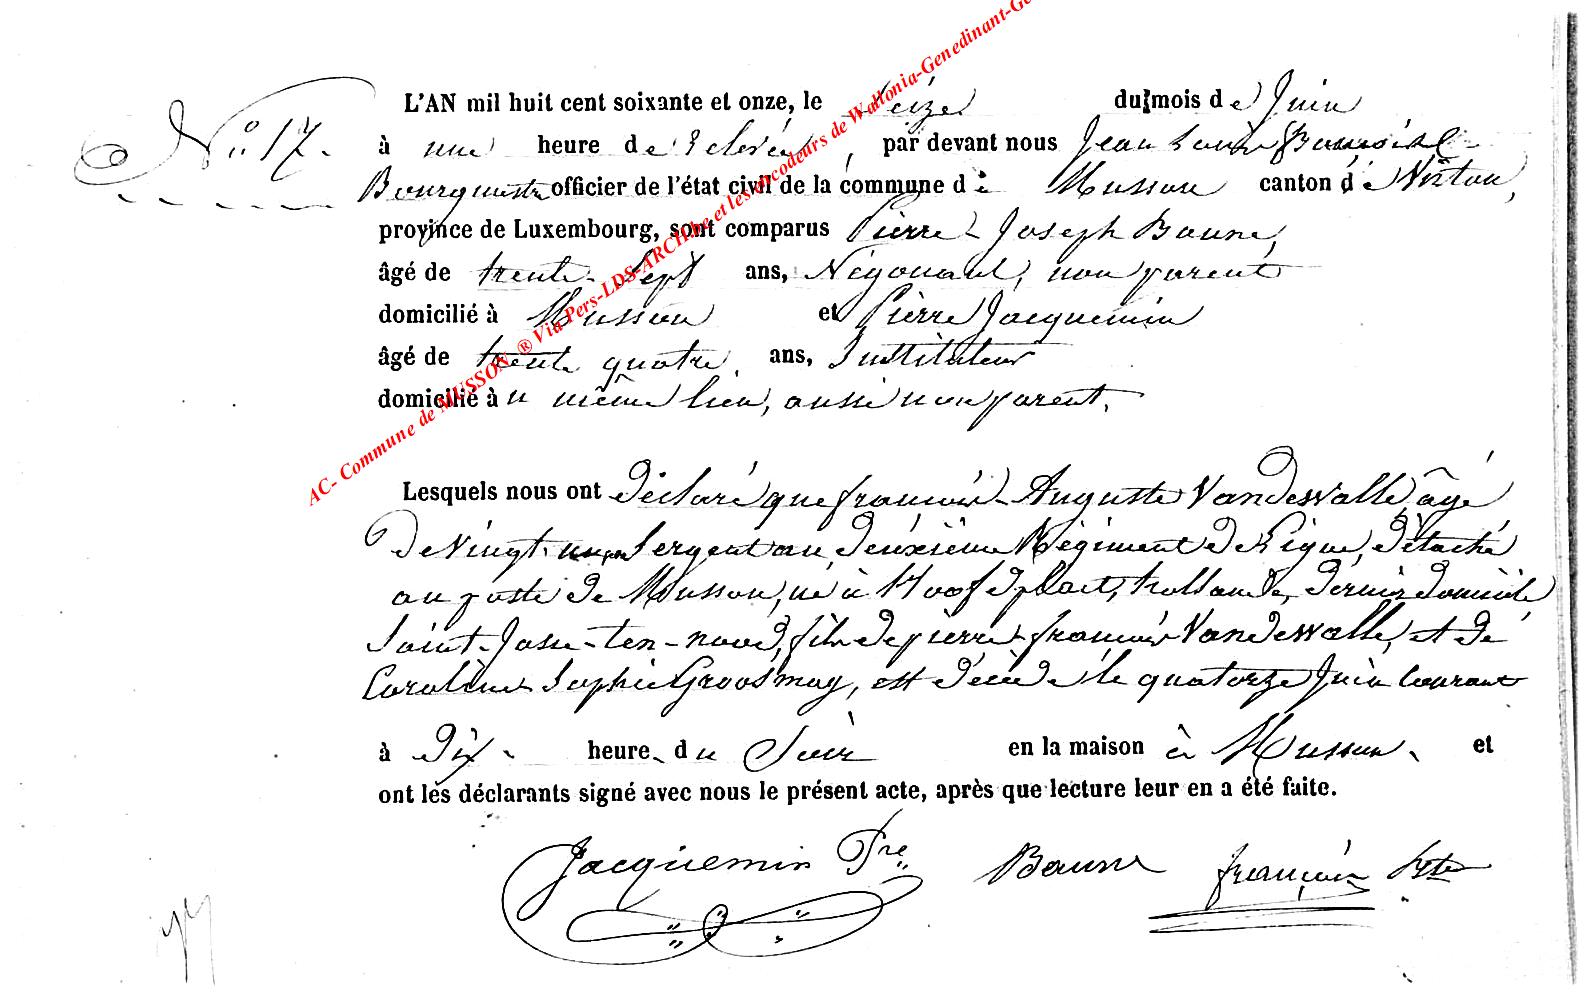 N° 17.
L'AN mil huit cent soixante et onze, le Seize du mois de Juin
à une heure de relevée, par devant nous Jean Louis François
Bourgmestre officier de l'état civil de la commune de Musson canton de Virton,
province de Luxembourg, sont comparus Pierre-Joseph Baune,
âgé de trente-sept ans, Négociant, non parent
domicilié à Musson et Pierre Jacquemin
âgé de trente quatre ans, Instituteur
domicilié au même lieu, aussi non parent.
Lesquels nous ont déclaré que françois-Auguste Vandewalle, âgé
de Vingt Sergent au deuxième Régiment de Ligne, détaché
au poste de Musson, né à Hoofdplaat, hollande, dernier domicile
Saint-Josse-ten-noode, fils de pierre-françois Vandewalle, et de
Caroline Sophie, est décédé le quatorze Juin courant
à Dix heure du Soir en la maison à Musson. et
ont les déclarants signé avec nous le présent acte, après que lecture leur en a été faite.
Jacquemin Pre Baune françois
AC- Commune de MUSSON ® Via Pers-LDS-ARCH.be et les encodeurs de Wallonia-Genedinant-Ge